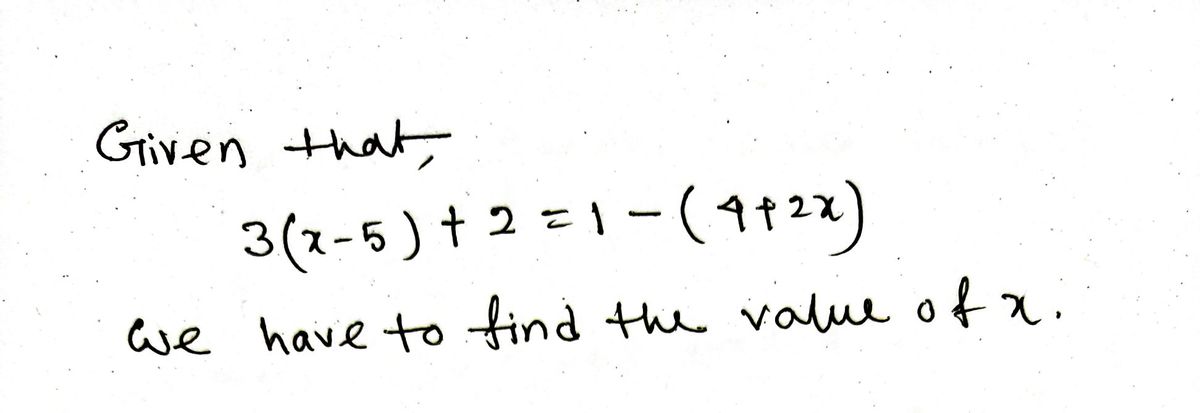 Given that,
3(x-5) + 2 = 1 - (4+2x)
We have to find the value of x.